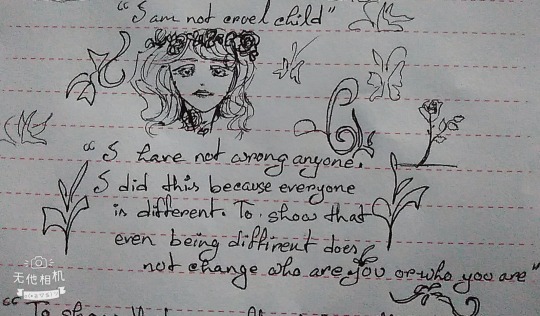 "I am not cruel child"
"I have not wrong anyone.
I did this because everyone
is different. To show that
even being diffirent does
not change who are you or who you are"
无他相机
"To show that